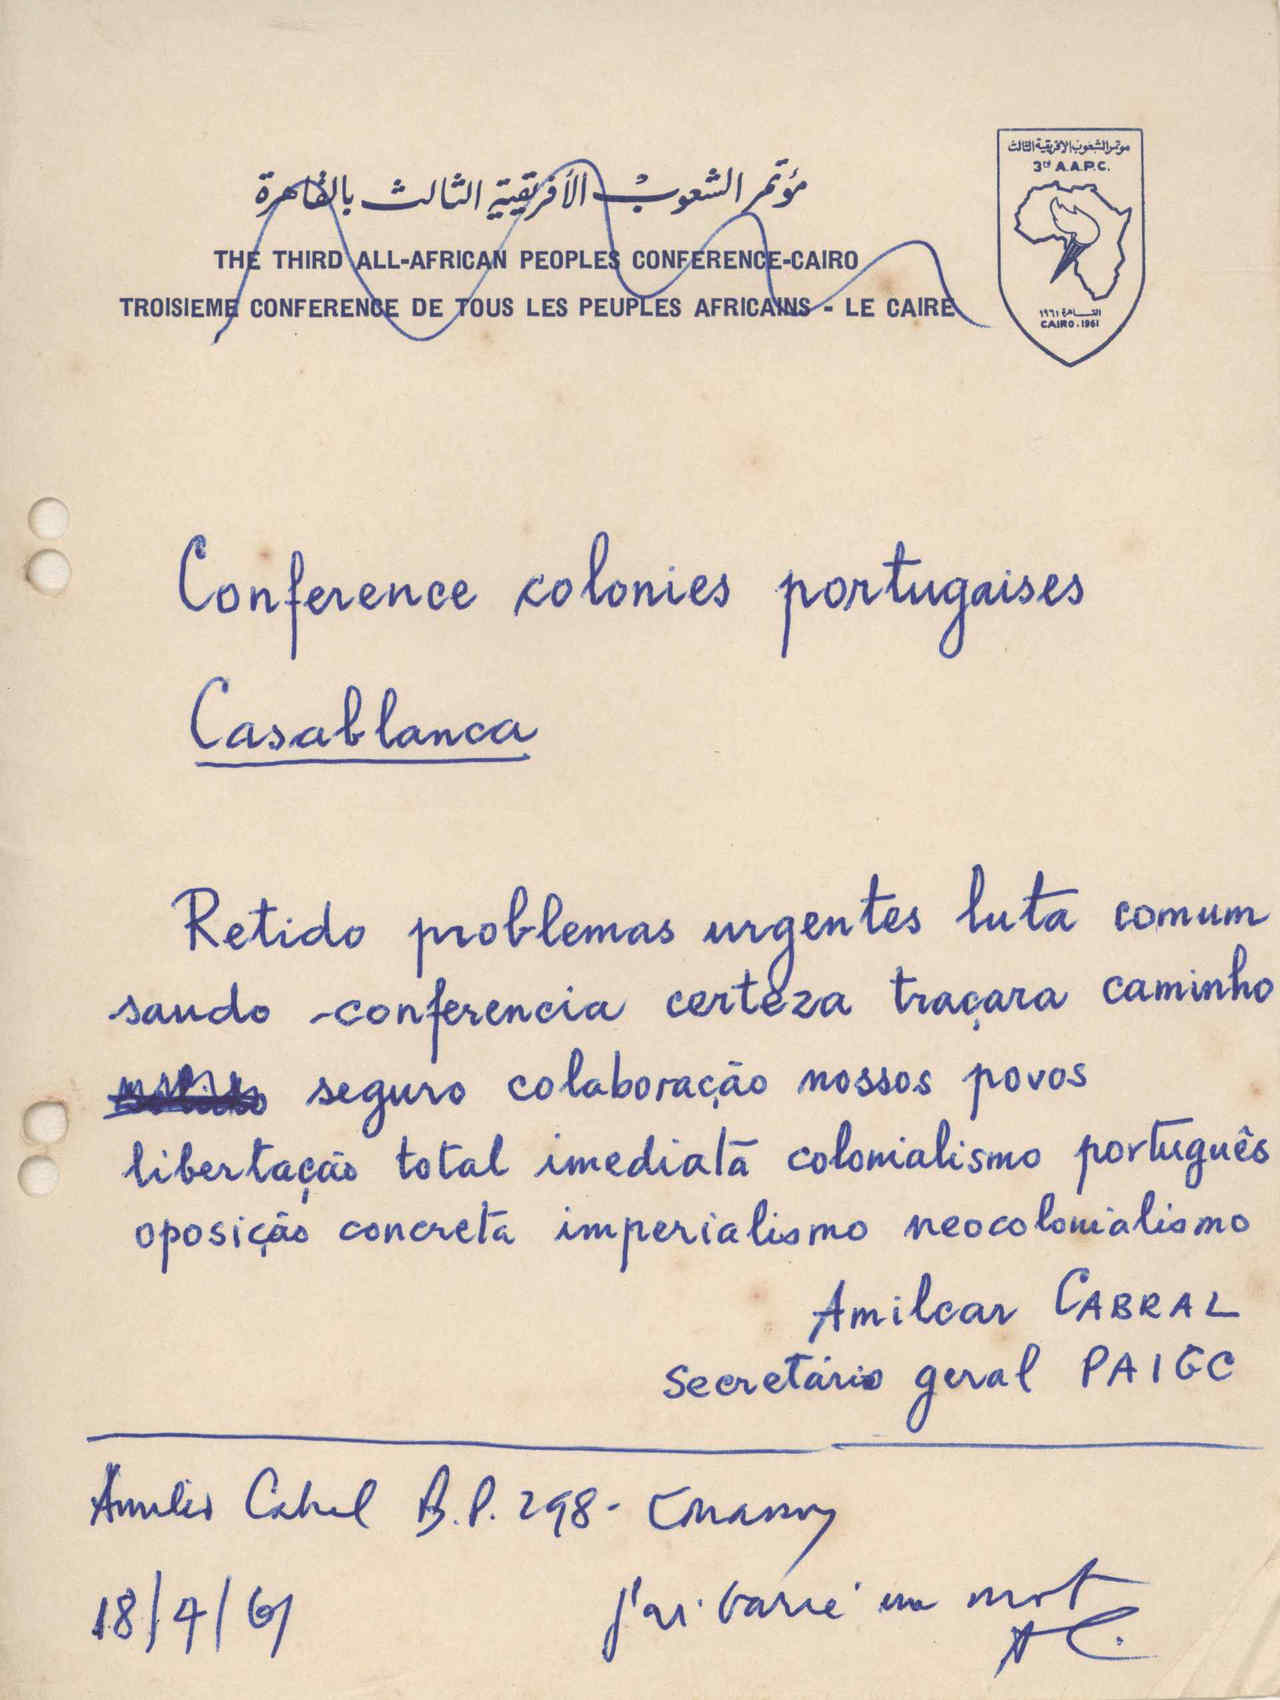 مؤتمر الشعوب الأفريقية الثالث بالقاهرة
THE THIRD ALL-AFRICAN PEOPLES CONFERENCE-CAIRO
TROISIEME CONFERENCE DE TOUS LES PEUPLES AFRICAINS - LE CAIRE
مؤتمر الشعوب الإفريقية الثالث
3rd A.A.P.C.
القاهرة ١٩٦١
CAIRO . 1961
Conference colonies portugaises
Casablanca
Retido problemas urgentes luta comum
saudo conferencia certeza traçara caminho
seguro colaboração nossos povos
libertação total imediata colonialismo português
oposição concreta imperialismo neocolonialismo
Amilcar CABRAL
Secretário geral PAIGC
Amilcar Cabral B.P. 298 - Conakry
18/4/61
j'ai barré un mot
AC.